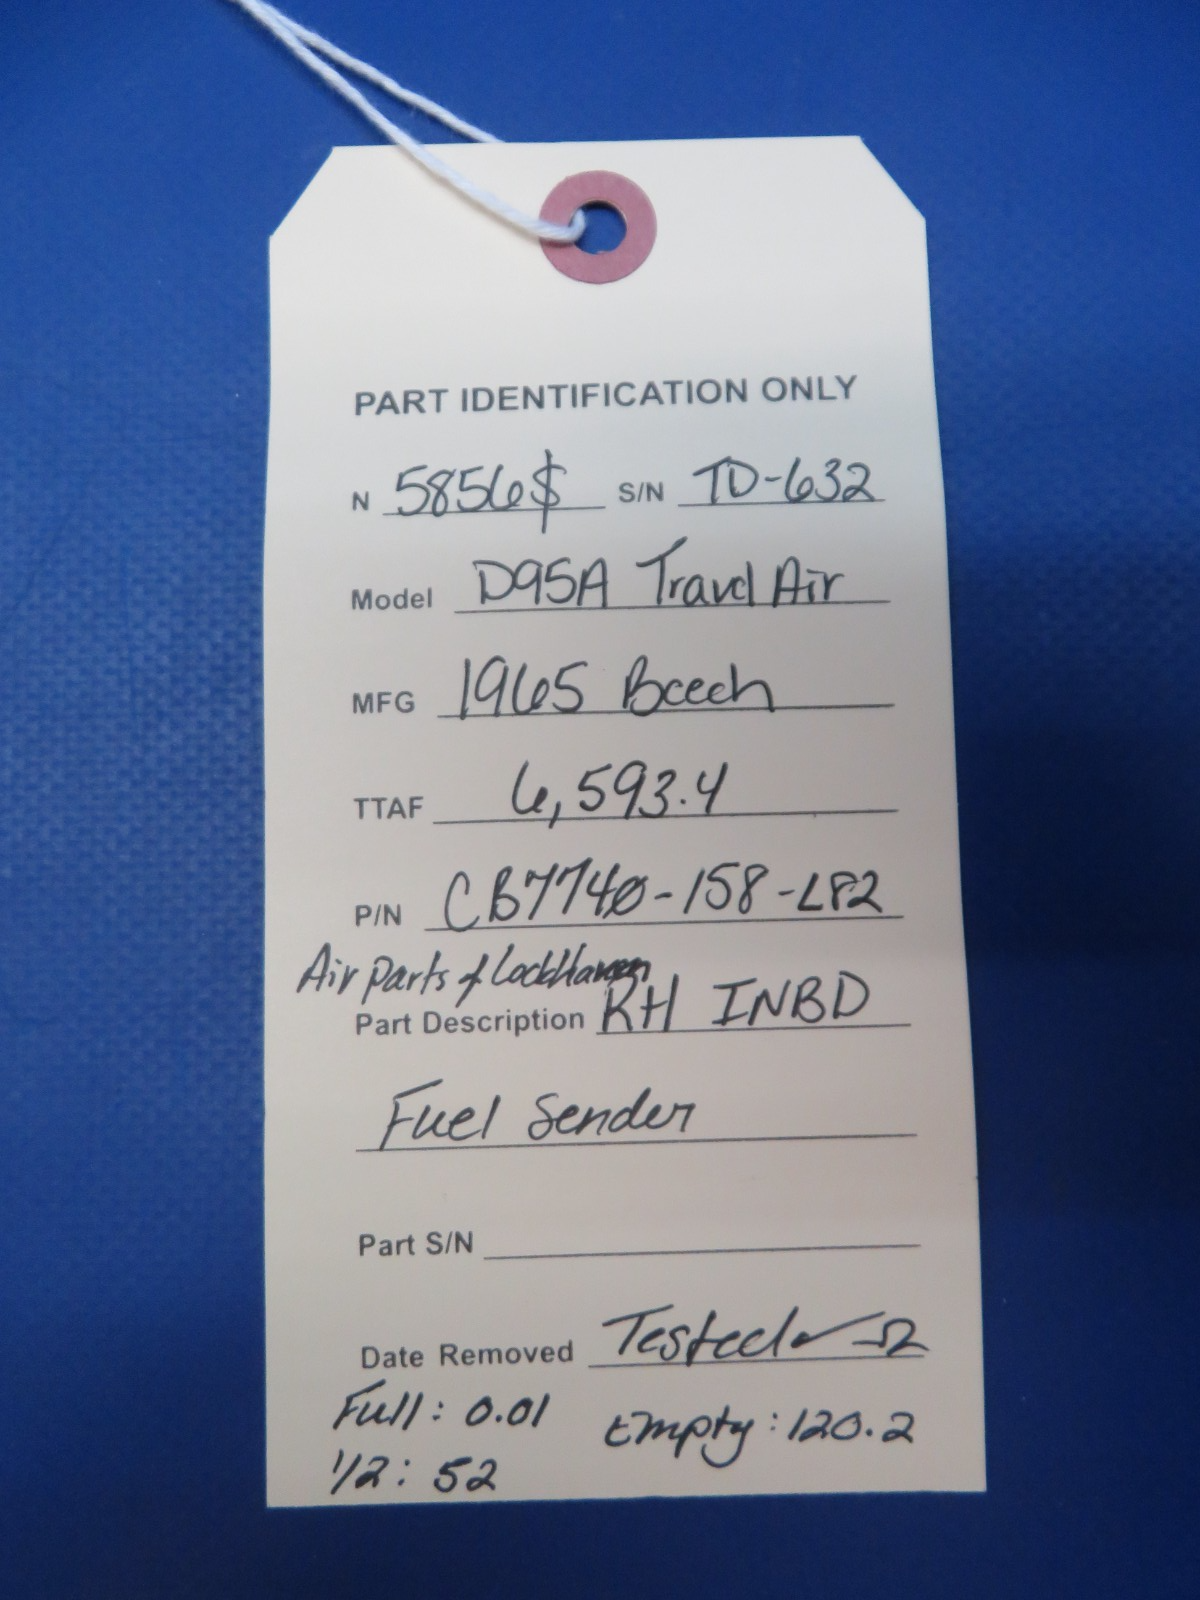 PART IDENTIFICATION ONLY
N 5856$ S/N TD-632
Model D95A Travel Air
MFG 1965 Beech
TTAF 6,593.4
P/N CB7740-158-LP2
Air Parts of LockHaven
Part Description RH INBD
Fuel Sender
Part S/N
Date Removed Tested ✓ Ω
Full: 0.01 Empty: 120.2
1/2: 52